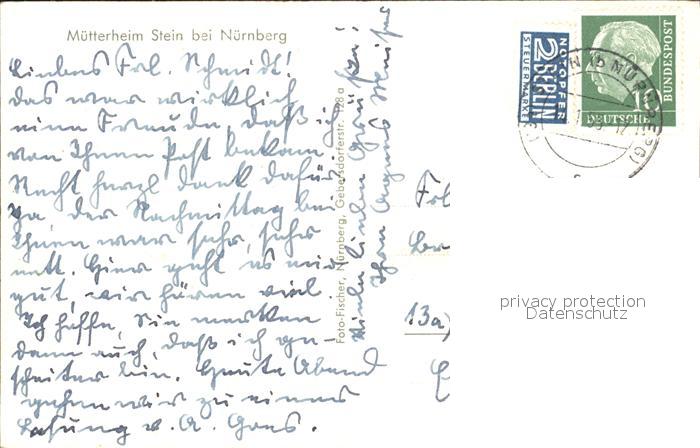 Mütterheim Stein bei Nürnberg
Liebes Frl. Schmidt!
Das war wirklich
eine Freude, daß ich
von Ihnen Post bekam.
Recht herzl. dank dafür.
Ja der Nachmittag bei
Ihnen war sehr, sehr
nett. Hier geht es mir
gut, wir hören viel.
Ich hoffe, Sie merken
dann auch, daß ich ge-
scheiter bin. Heute Abend
gehen wir zu einer
Lesung v. A. Goes.
Vielen lieben Grüße
Ihre
Foto-Fischer, Nürnberg, Gebersdorferstr. 128 a
NOTOPFER
2 BERLIN
STEUERMARKE
DEUTSCHE
BUNDESPOST
10
NÜRNBERG
Frl
13a)
privacy protection
Datenschutz